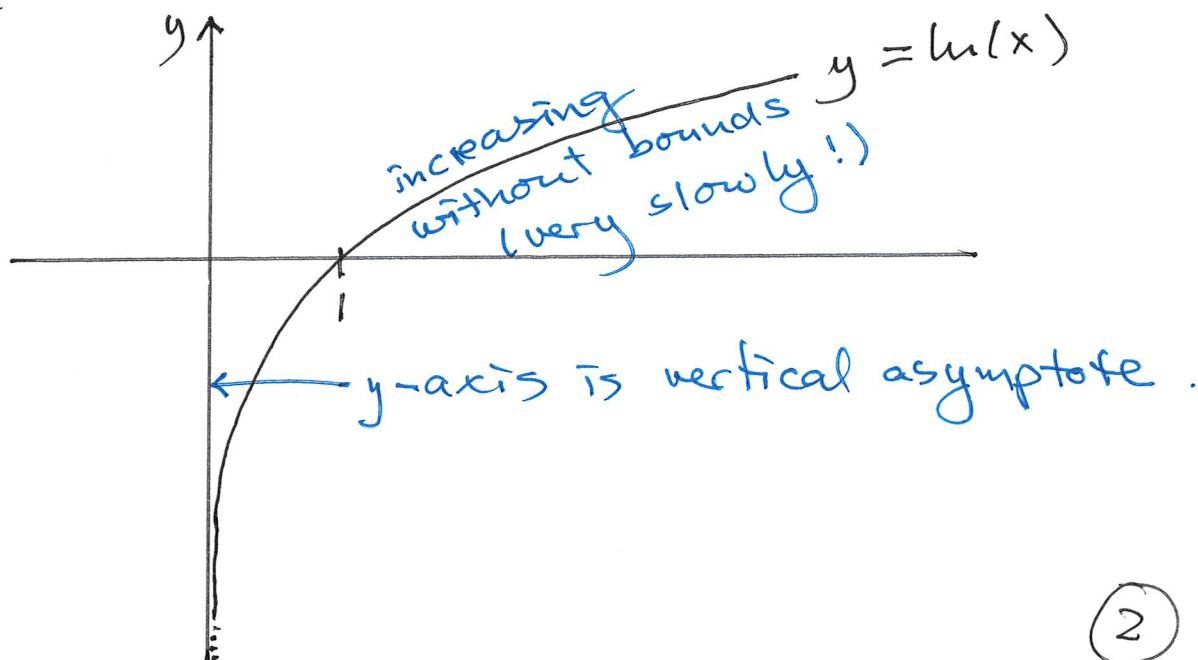 y
y = ln(x)
increasing
without bounds
(very slowly!)
1
y-axis is vertical asymptote.
2